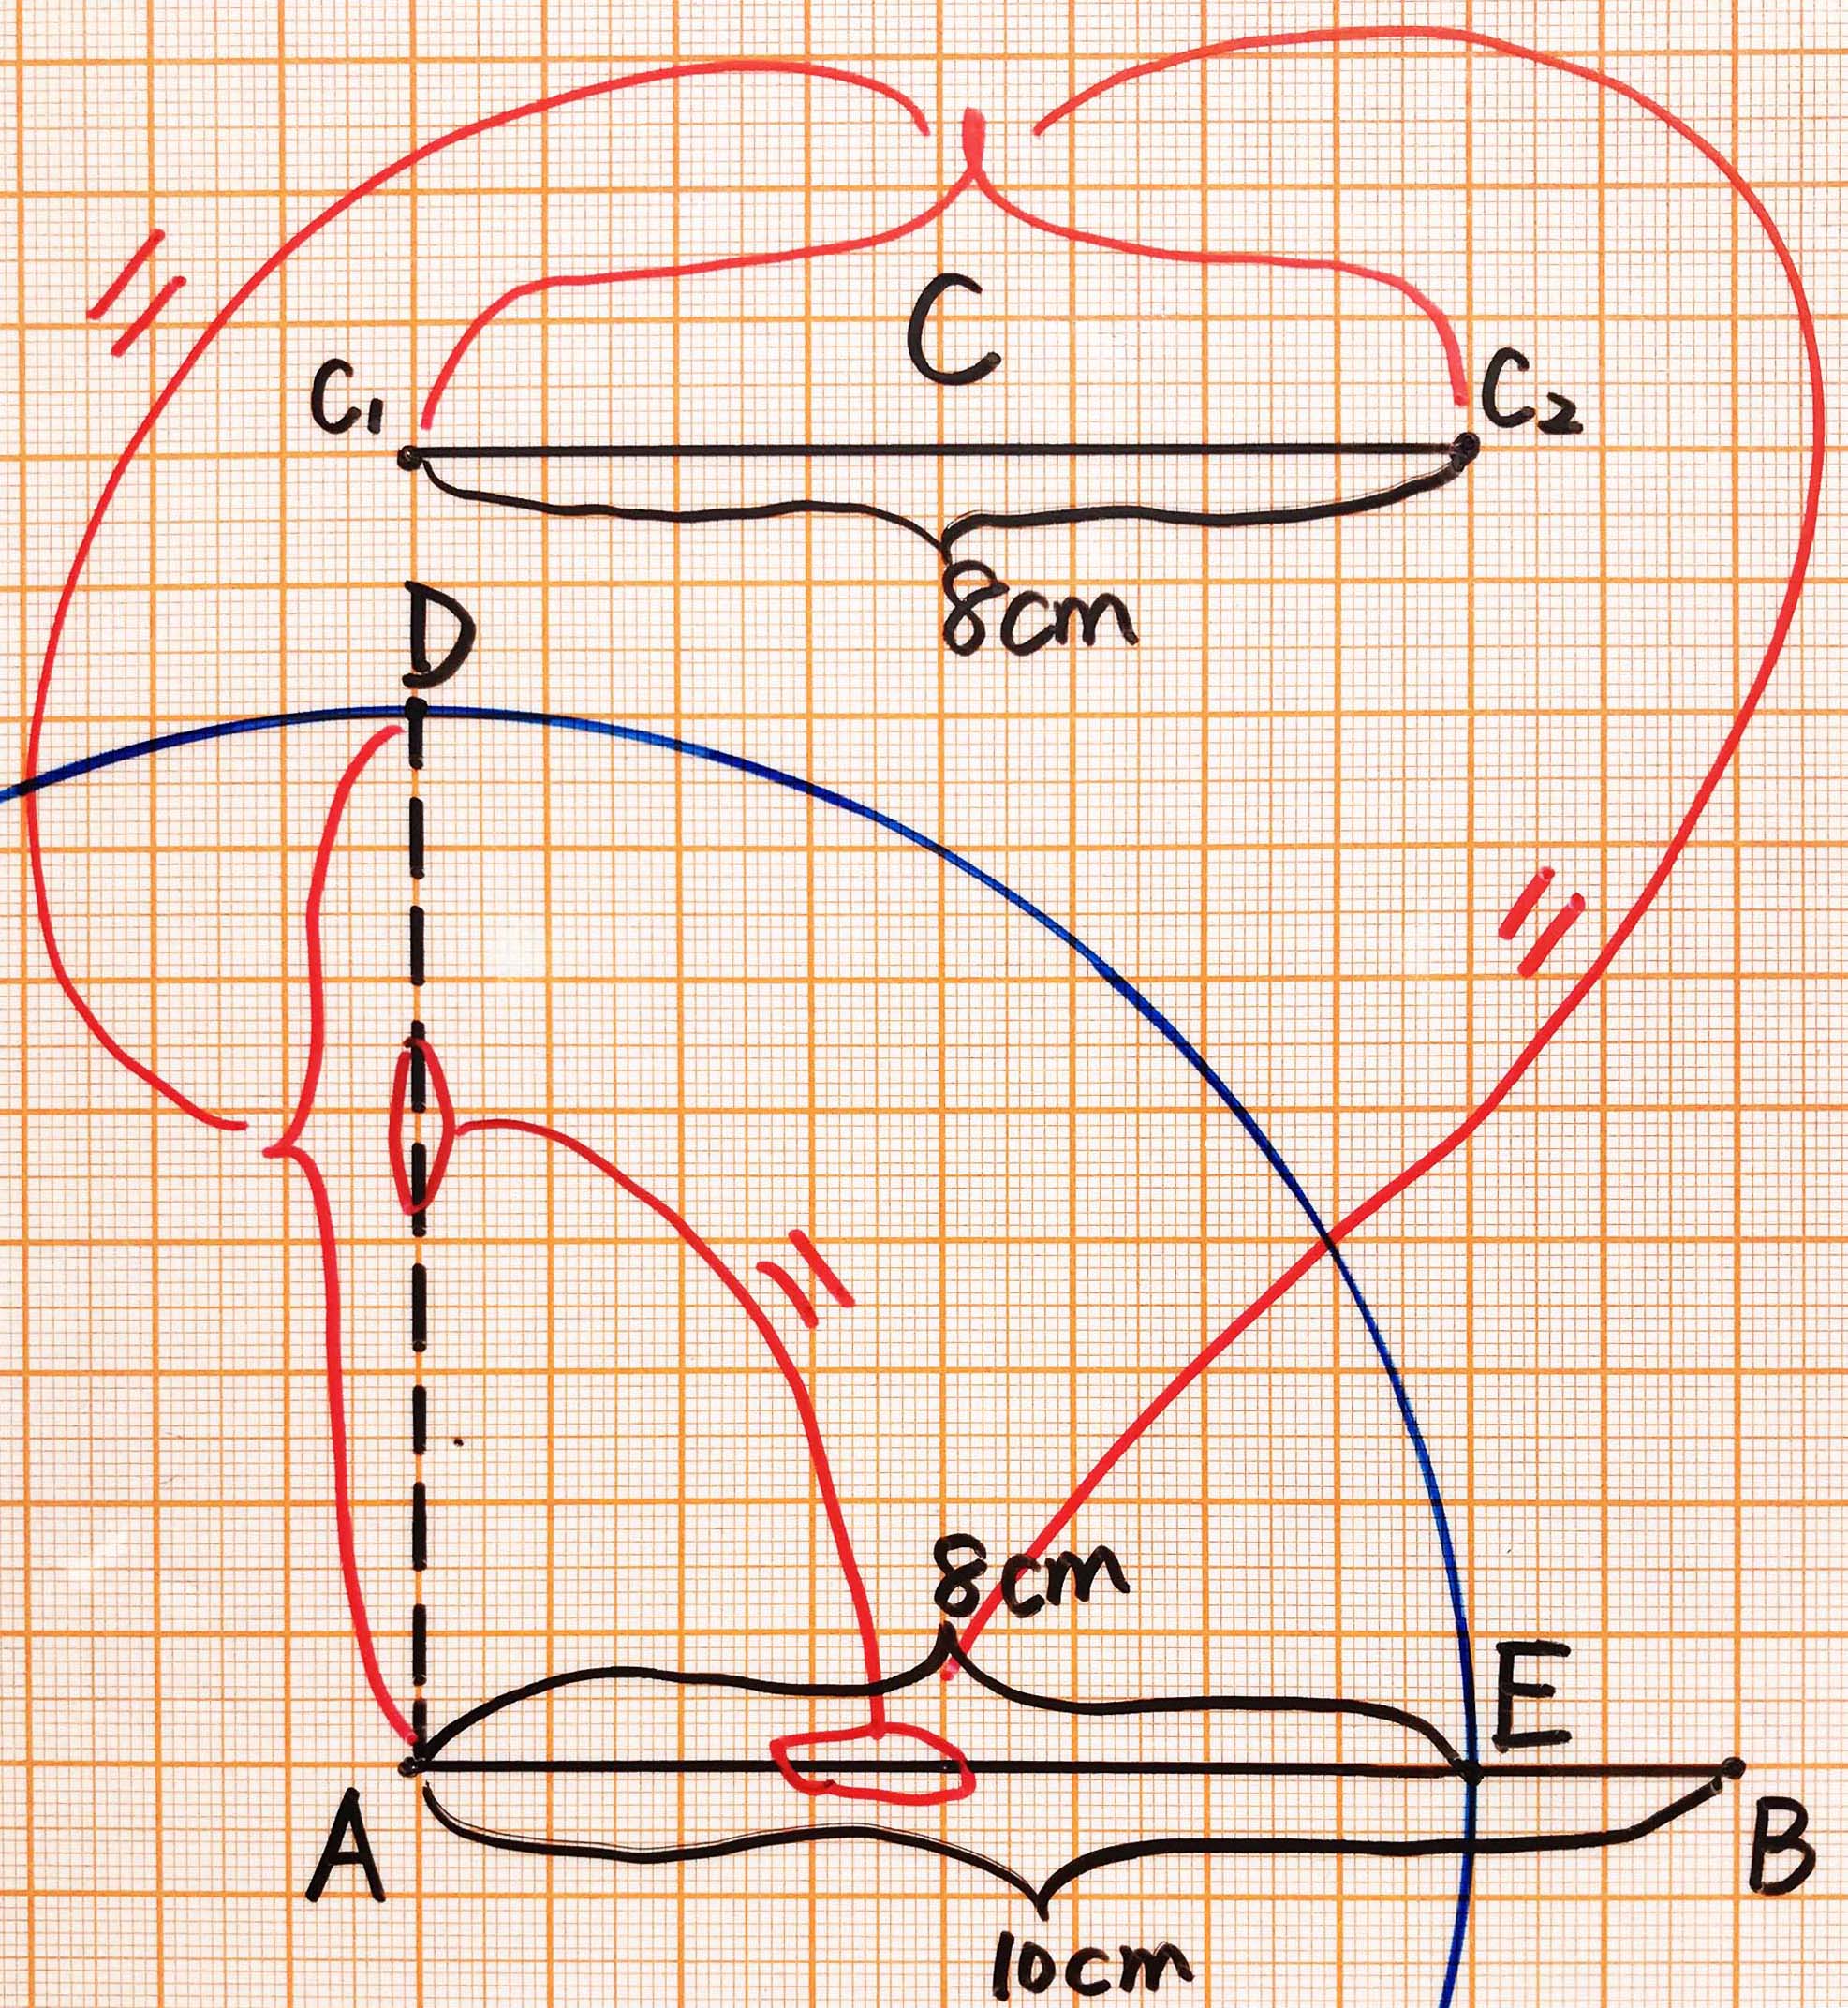 C
C₁
C₂
8cm
D
8cm
E
A
B
10cm